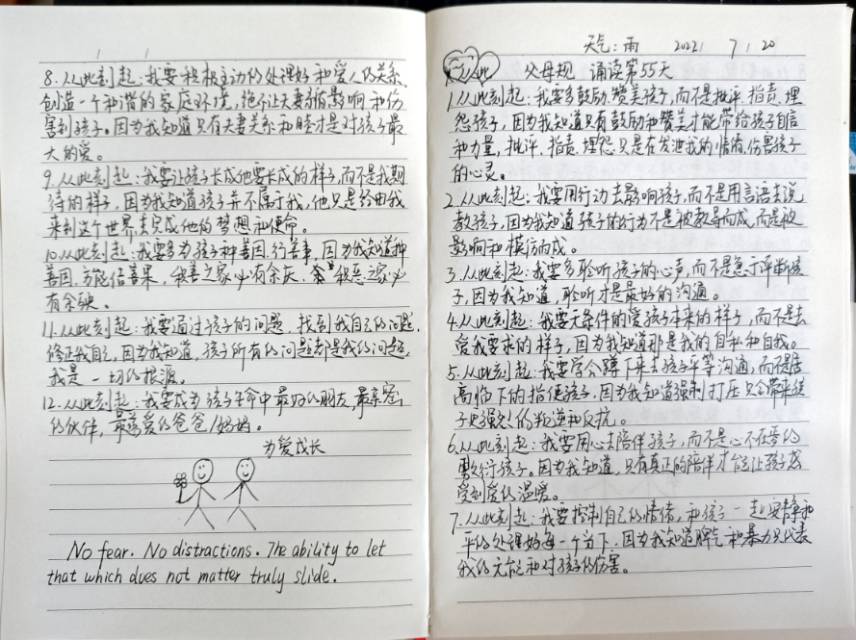 8.从此刻起:我要积极主动的处理好和爱人的关系,
创造一个和谐的家庭环境,绝不让夫妻影响和伤
害到孩子。因为我知道只有夫妻关系和睦才是对孩子最
大的爱。
9.从此刻起:我要让孩子长成他要长成的样子,而不是我期
待的样子,因为我知道孩子并不属于我,他只是经由我
来到这个世界去完成他的梦想和使命。
10.从此刻起:我要多为孩子种善因,行善事,因为我知道种
善因,方能结善果,积善之家必有余庆,积恶之家必
有余殃。
11.从此刻起:我要通过孩子的问题,找到我自己的问题,
修正我自己,因为我知道,孩子所有的问题都是我的问题,
我是一切的根源。
12.从此刻起:我要成为孩子生命中最好的朋友,最亲密
的伙伴,最慈爱的爸爸/妈妈。
为爱成长
No fear. No distractions. The ability to let
that which does not matter truly slide.
天气:雨 2022/ 7/20
父母规 诵读第55天
1.从此刻起:我要多鼓励,赞美孩子,而不是批评,指责,埋
怨孩子,因为我知道只有鼓励和赞美才能带给孩子自信
和力量,批评,指责,埋怨只是在发泄我的情绪,伤害孩子
的心灵。
2.从此刻起:我要用行动去影响孩子,而不是用言语去说
教孩子,因为我知道孩子的行为不是被教导而成,而是被
影响和模仿而成。
3.从此刻起:我要多聆听孩子的心声,而不是急于评断孩
子,因为我知道,聆听才是最好的沟通。
4.从此刻起:我要无条件的爱孩子本来的样子,而不是去
爱我要求的样子,因为我知道那是我的自私和自我。
5.从此刻起:我要学会蹲下来去孩子平等沟通,而不是居
高临下的指使孩子,因为我知道强制打压只会带来孩
子更强烈的叛逆和反抗。
6.从此刻起:我要用心去陪伴孩子,而不是心不在焉的
敷衍孩子。因为我知道,只有真正的陪伴才能让孩子感
受到爱的温暖。
7.从此刻起:我要控制自己的情绪,和孩子一起安静和
平的处理好每一个当下,因为我知道脾气和暴力只代表
我的无能和对孩子的伤害。